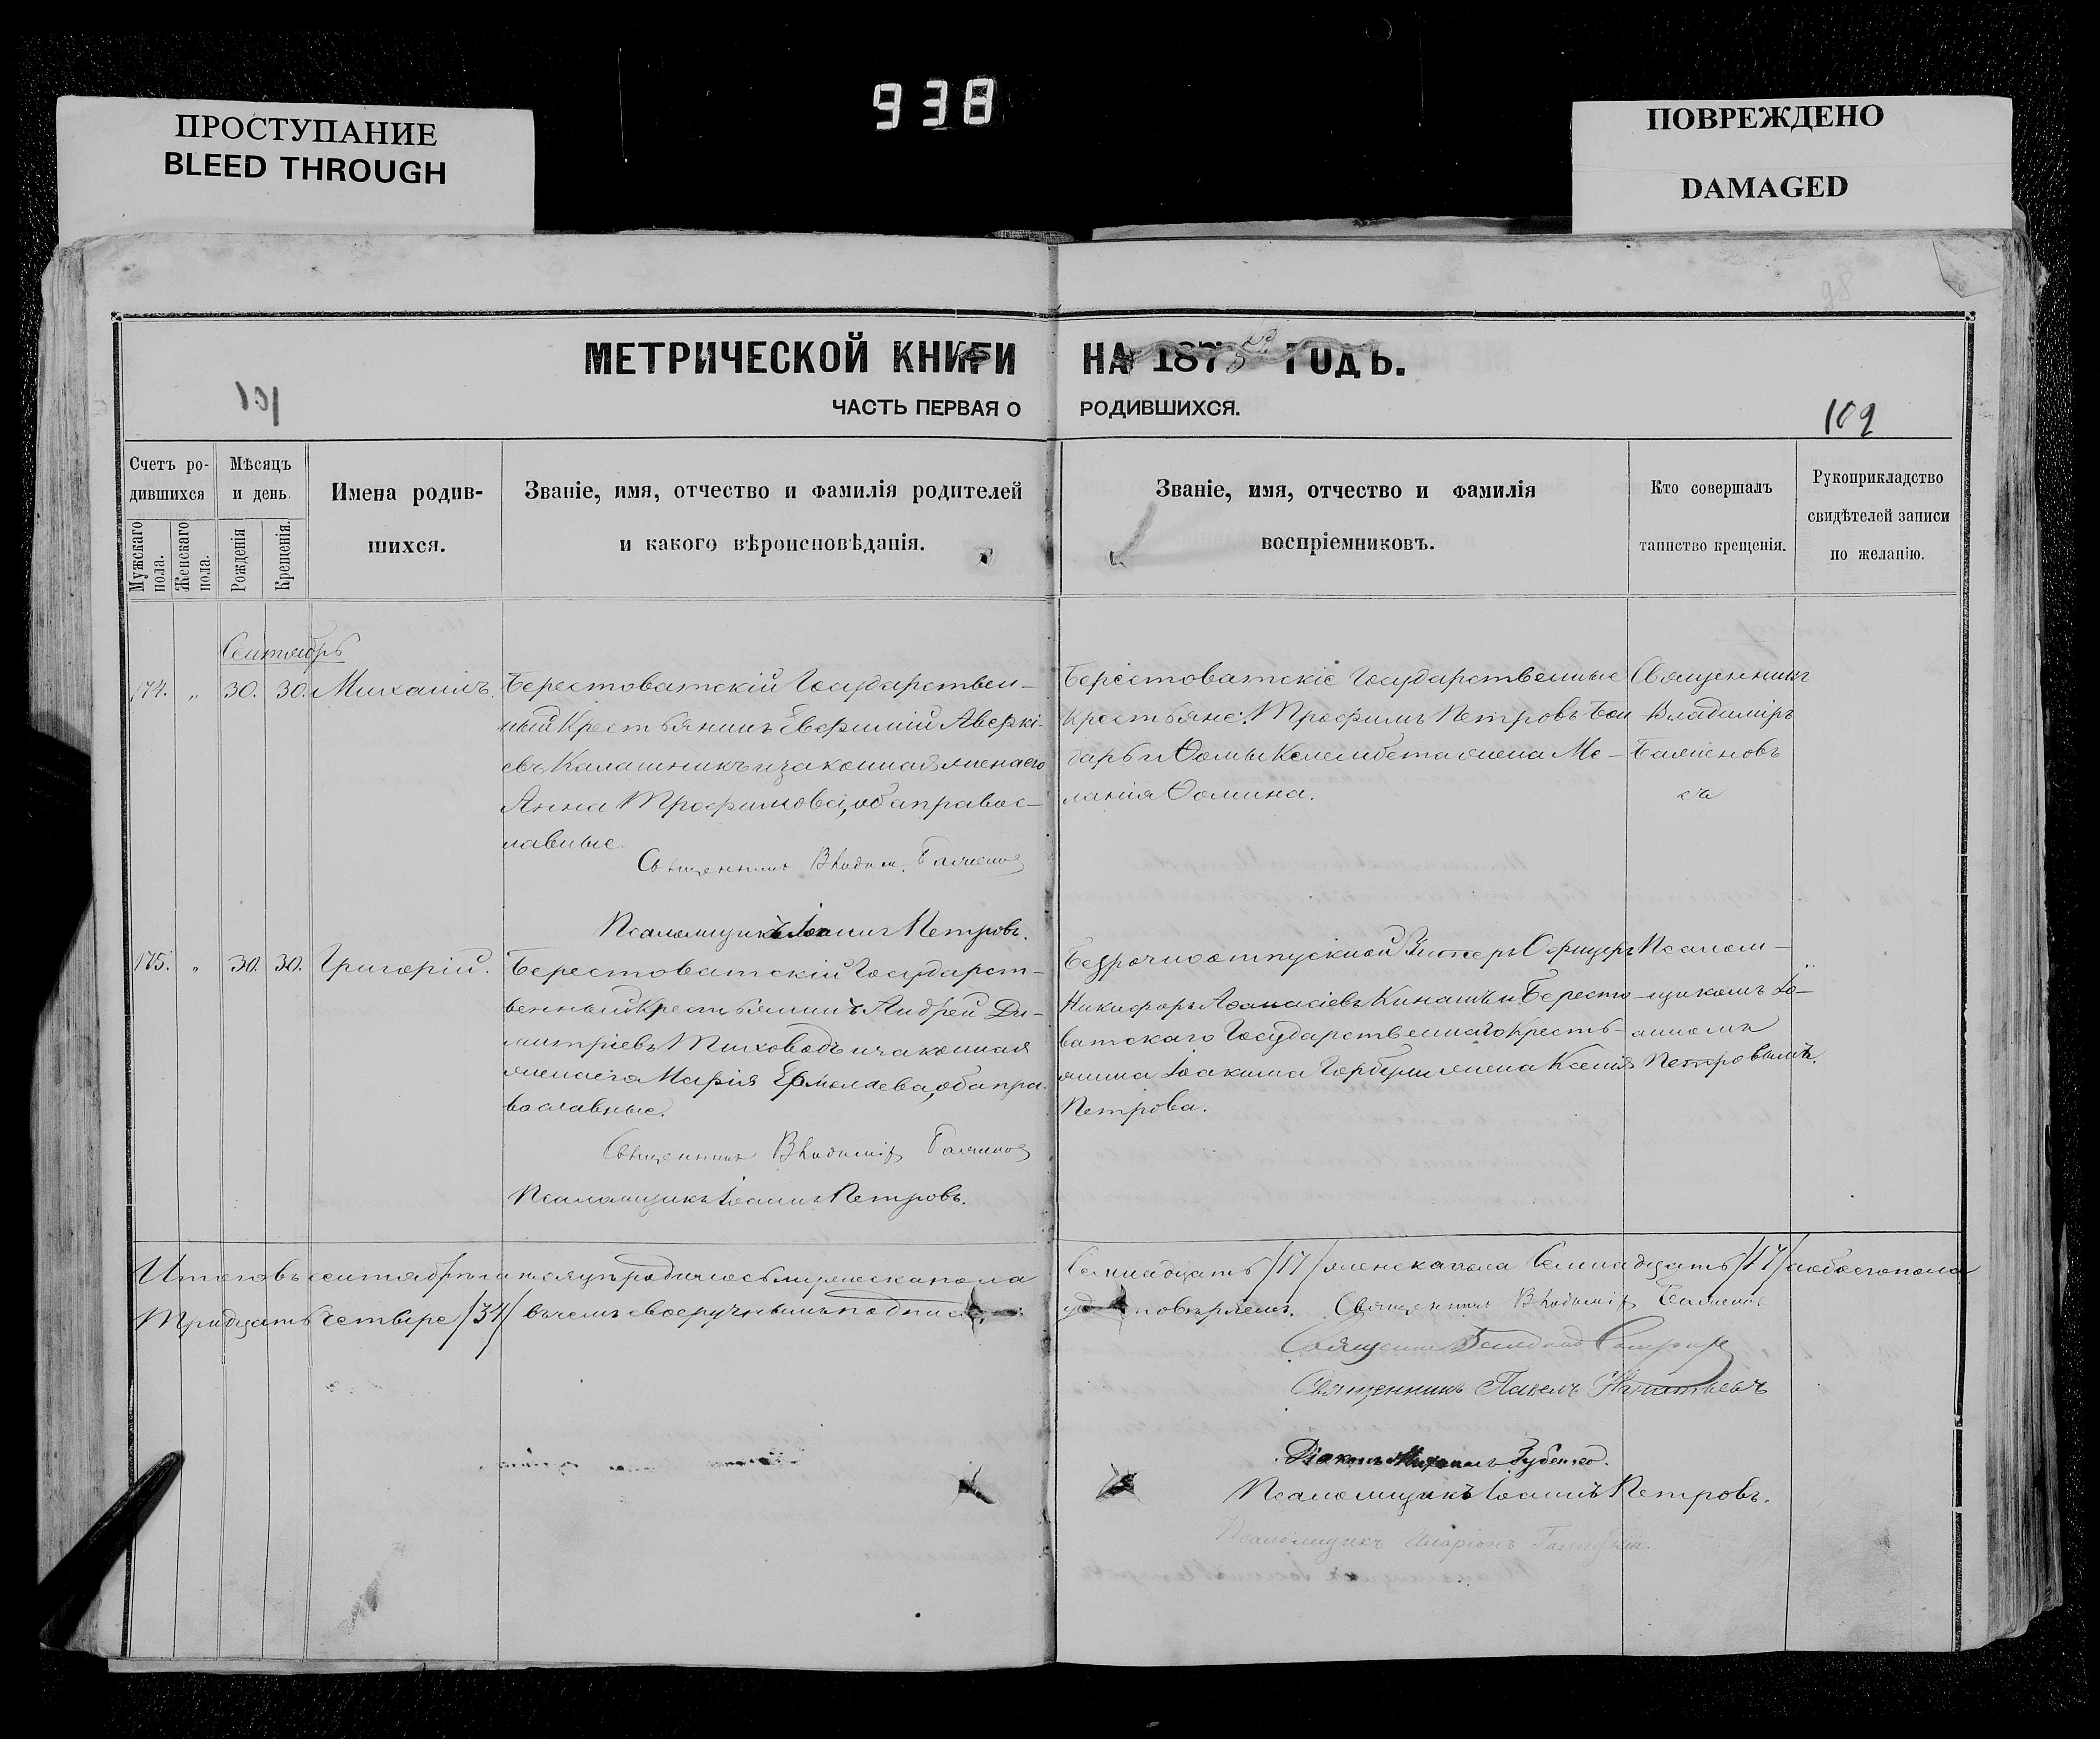 938
ПРОСТУПАНИЕ
BLEED THROUGH
ПОВРЕЖДЕНО
DAMAGED
МЕТРИЧЕСКОЙ КНИГИ НА 1875 ГОДЪ.
101
ЧАСТЬ ПЕРВАЯ О РОДИВШИХСЯ.
109
98
Счетъ ро-
дившихся
Мужскаго пола.
Женскаго пола.
Мѣсяцъ
и день.
Рожденія
Крещенія.
Имена родив-
шихся.
Званіе, имя, отчество и фамилія родителей
и какого вѣроисповѣданія.
Званіе, имя, отчество и фамилія
воспріемниковъ.
Кто совершалъ
таинство крещенія.
Рукоприкладство
свидѣтелей записи
по желанію.
Сентябрь
174. „ 30. 30. Михаилъ.
Берестоватскій Государствен-
ный Крестьянинъ Евфимій Аверкі-
евъ Калашникъ и законная жена его
Анна Трофимова, оба правос-
лавные.
Священникъ Владим. Баженов
Псаломщикъ Іоаннъ Петровъ.
Берестоватскіе Государственные
Крестьяне: Трофимъ Петровъ
дарь и Ѳомы Келембета жена Ме-
ланія Ѳомина.
Священникъ
Владиміръ
Баженовъ
175. „ 30. 30. Григорій.
Берестоватскій Государст-
венный Крестьянинъ Андрей Ди-
митріевъ Тиховодъ и законная
жена его Марія Ермолаева, оба пра-
вославные.
Священникъ Владиміръ Баженов
Псаломщикъ Іоаннъ Петровъ.
Безсрочноотпускной Унтеръ Офицеръ
Никифоръ Аѳанасіевъ Кинашъ и Бересто-
ватскаго Государственнаго Кресть-
янина Іоакима Горбули жена Ксенія
Петрова.
Псалом-
щикомъ Іо-
анномъ
Петровымъ.
Итого въ сентябрѣ мѣсяцѣ родилось мужеска пола Семнадцать /17/ женска пола Семнадцать /17/ а обоего пола
Тридцать четыре /34/ въ чемъ своеручнымъ подписомъ удостовѣряемъ. Священникъ Владиміръ Баженов
Священникъ
Священникъ Павелъ Игнатьевъ
Діаконъ Михаилъ Губенко.
Псаломщикъ Іоаннъ Петровъ.
Псаломщикъ Иларіонъ